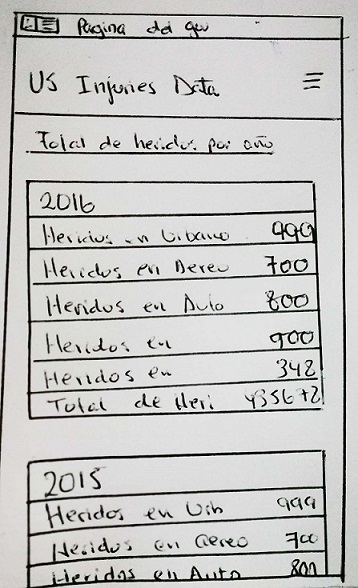 Pagina del gov
US Injuries Data
Total de heridos por año
2016
Heridos en Urbano 999
Heridos en Aereo 700
Heridos en Auto 800
Heridos en 900
Heridos en 342
Total de Heri 435672
2015
Heridos en Urb 999
Heridos en aereo 700
Heridos en Auto 800